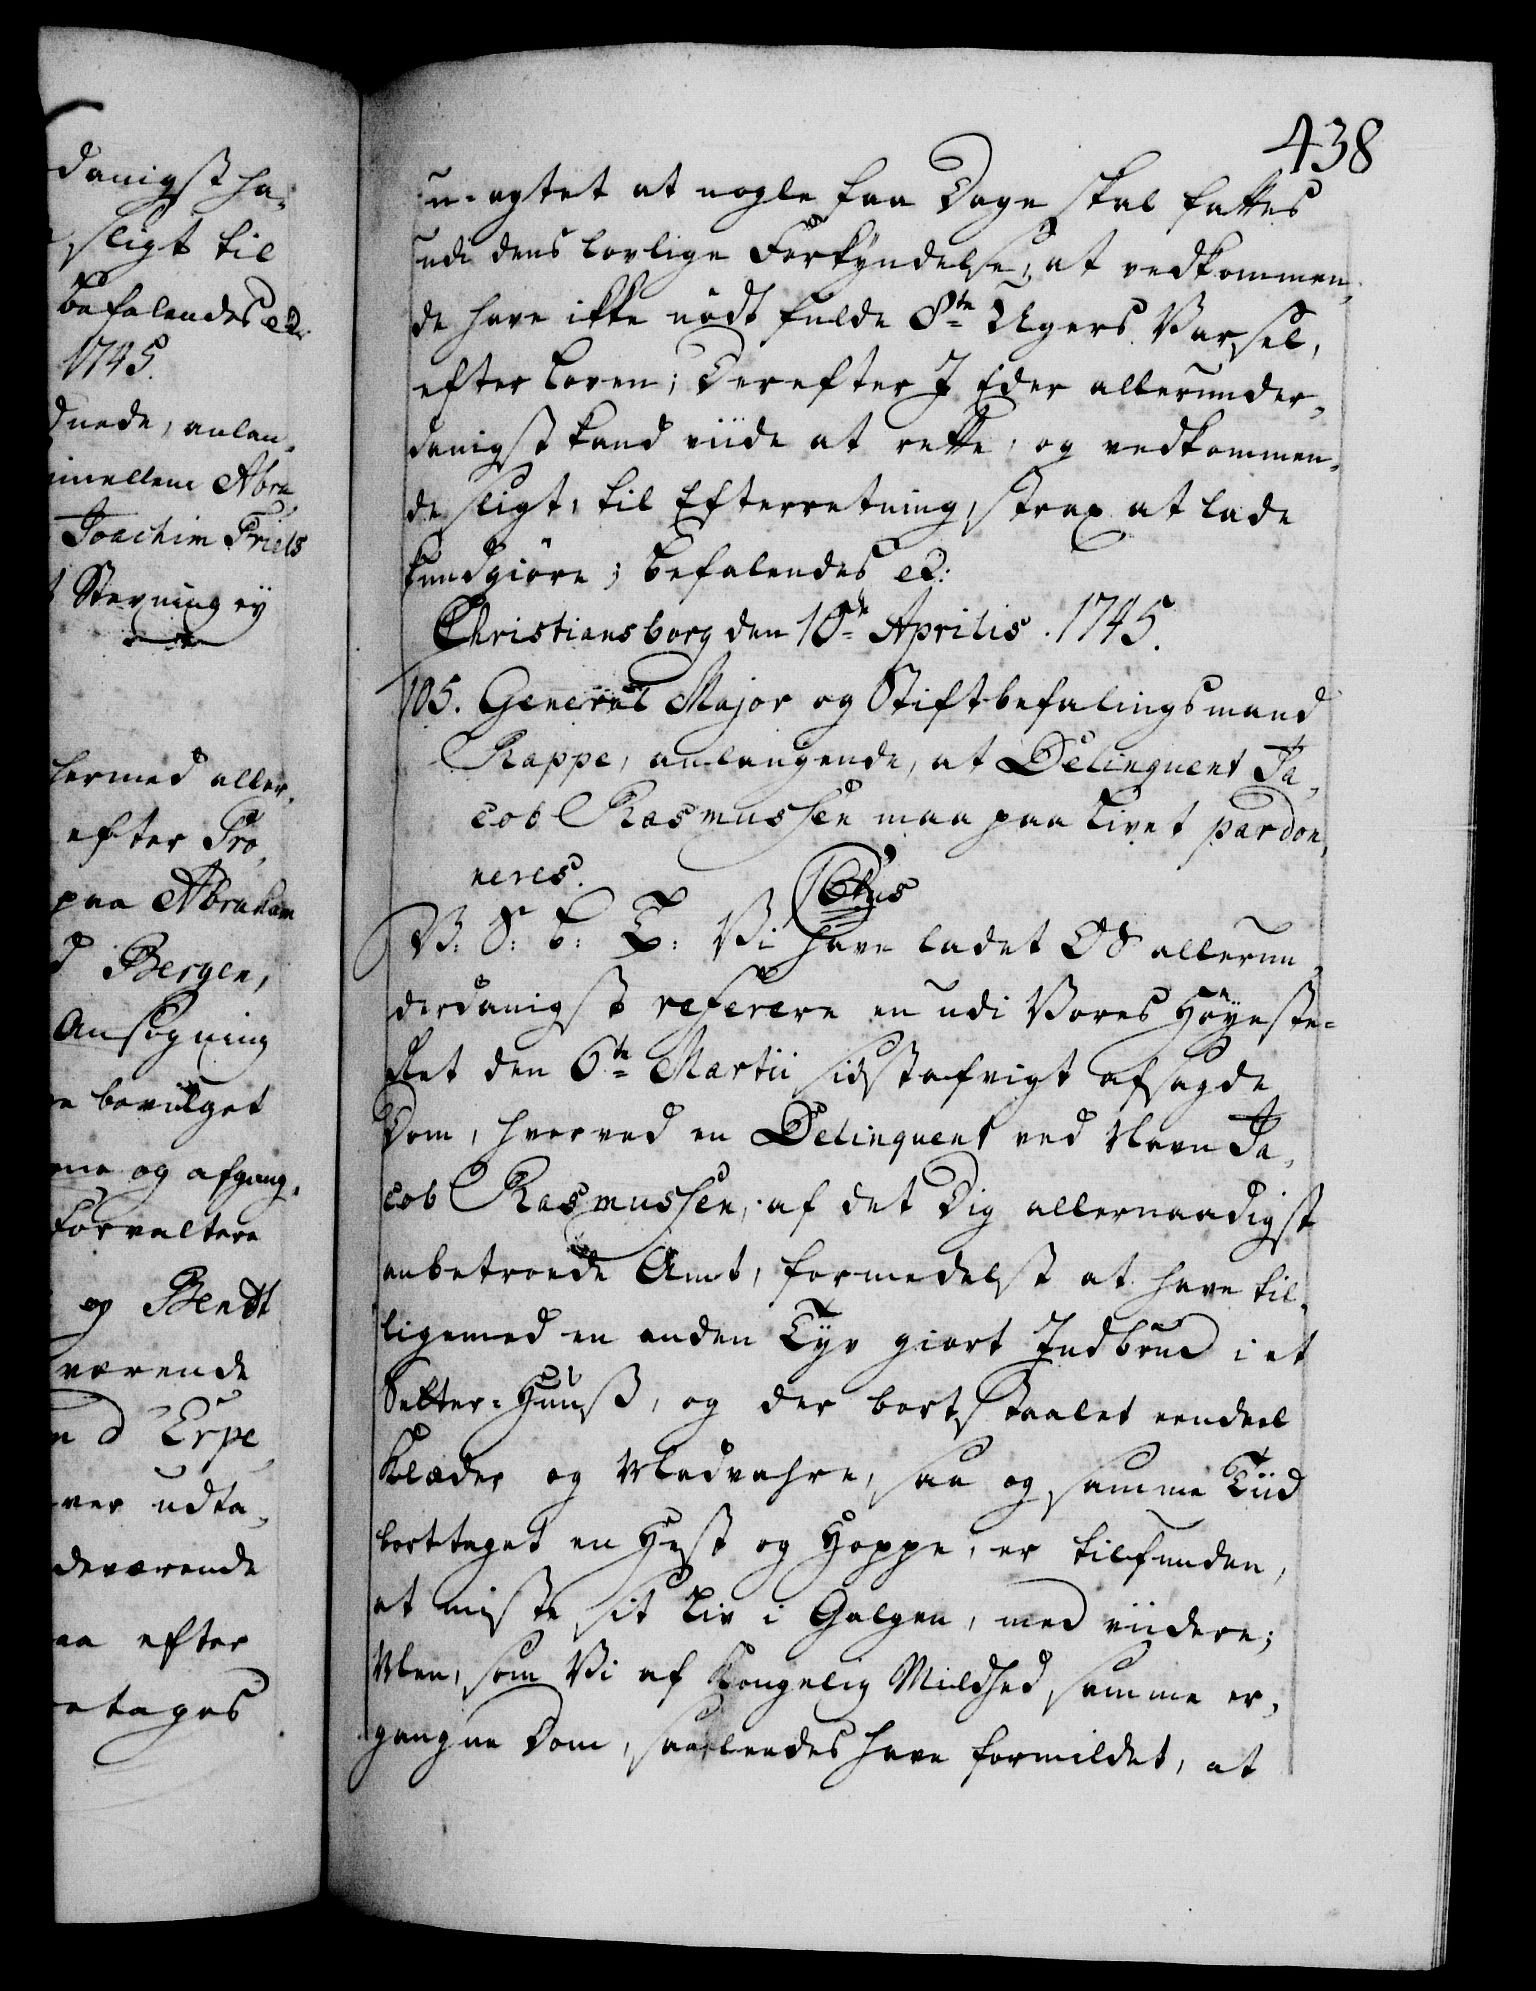 danigst ha-
sligt til
befalendes etc:
1745.
nede, anlan-
imellem Abra-
Joachim Friels
Stevning ey
hermed aller-
efter Pro-
paa Abraham
Bergen,
Ansøgning
bevilget
og afgang-
forvaltere
og Bendt
værende
d Erpe
ver udta-
deværende
aa efter
etages
438
u-agtet at nogle faa Dage skal fattes
udi dens lovlige Forkyndelse, at vedkommen-
de have ikke nødt fulde 8te Ugers Varsel,
efter Loven; Derefter I Eder allerunder-
danigst kand viide at rette, og vedkommen-
de sligt, til Efterretning, strax at lade
kundgiøre; befalendes etc:
Christiansborg den 10de Aprilis. 1745.
105. General Major og Stiftbefalingsmand
Rappe, anlangende, at Delinquent Ja-
cob Rasmussen maa paa Livet pardon-
neres.
V: S: G: T: Vi have ladet OS allerun-
derdanigst referere en udi Vores Høyeste-
Ret den 6te Martii sidstafvigt afsagde
Dom, hvorved en Delinquent ved Navn Ja-
cob Rasmussen, af det Dig allernaadigst
anbetroede Amt, formedelst at have til-
ligemed en anden Tyv giort Indbrud i et
Sætter-Huus, og der bortstaalet eendeel
Klæder og Madvahre, saa og samme Tiid
borttaget en Hest og Hoppe, er tilfunden,
at miste sit Liv i Galgen, med viidere;
Men, som Vi af Kongelig Mildhed samme er-
gangne Dom, saaledes have formildet, at